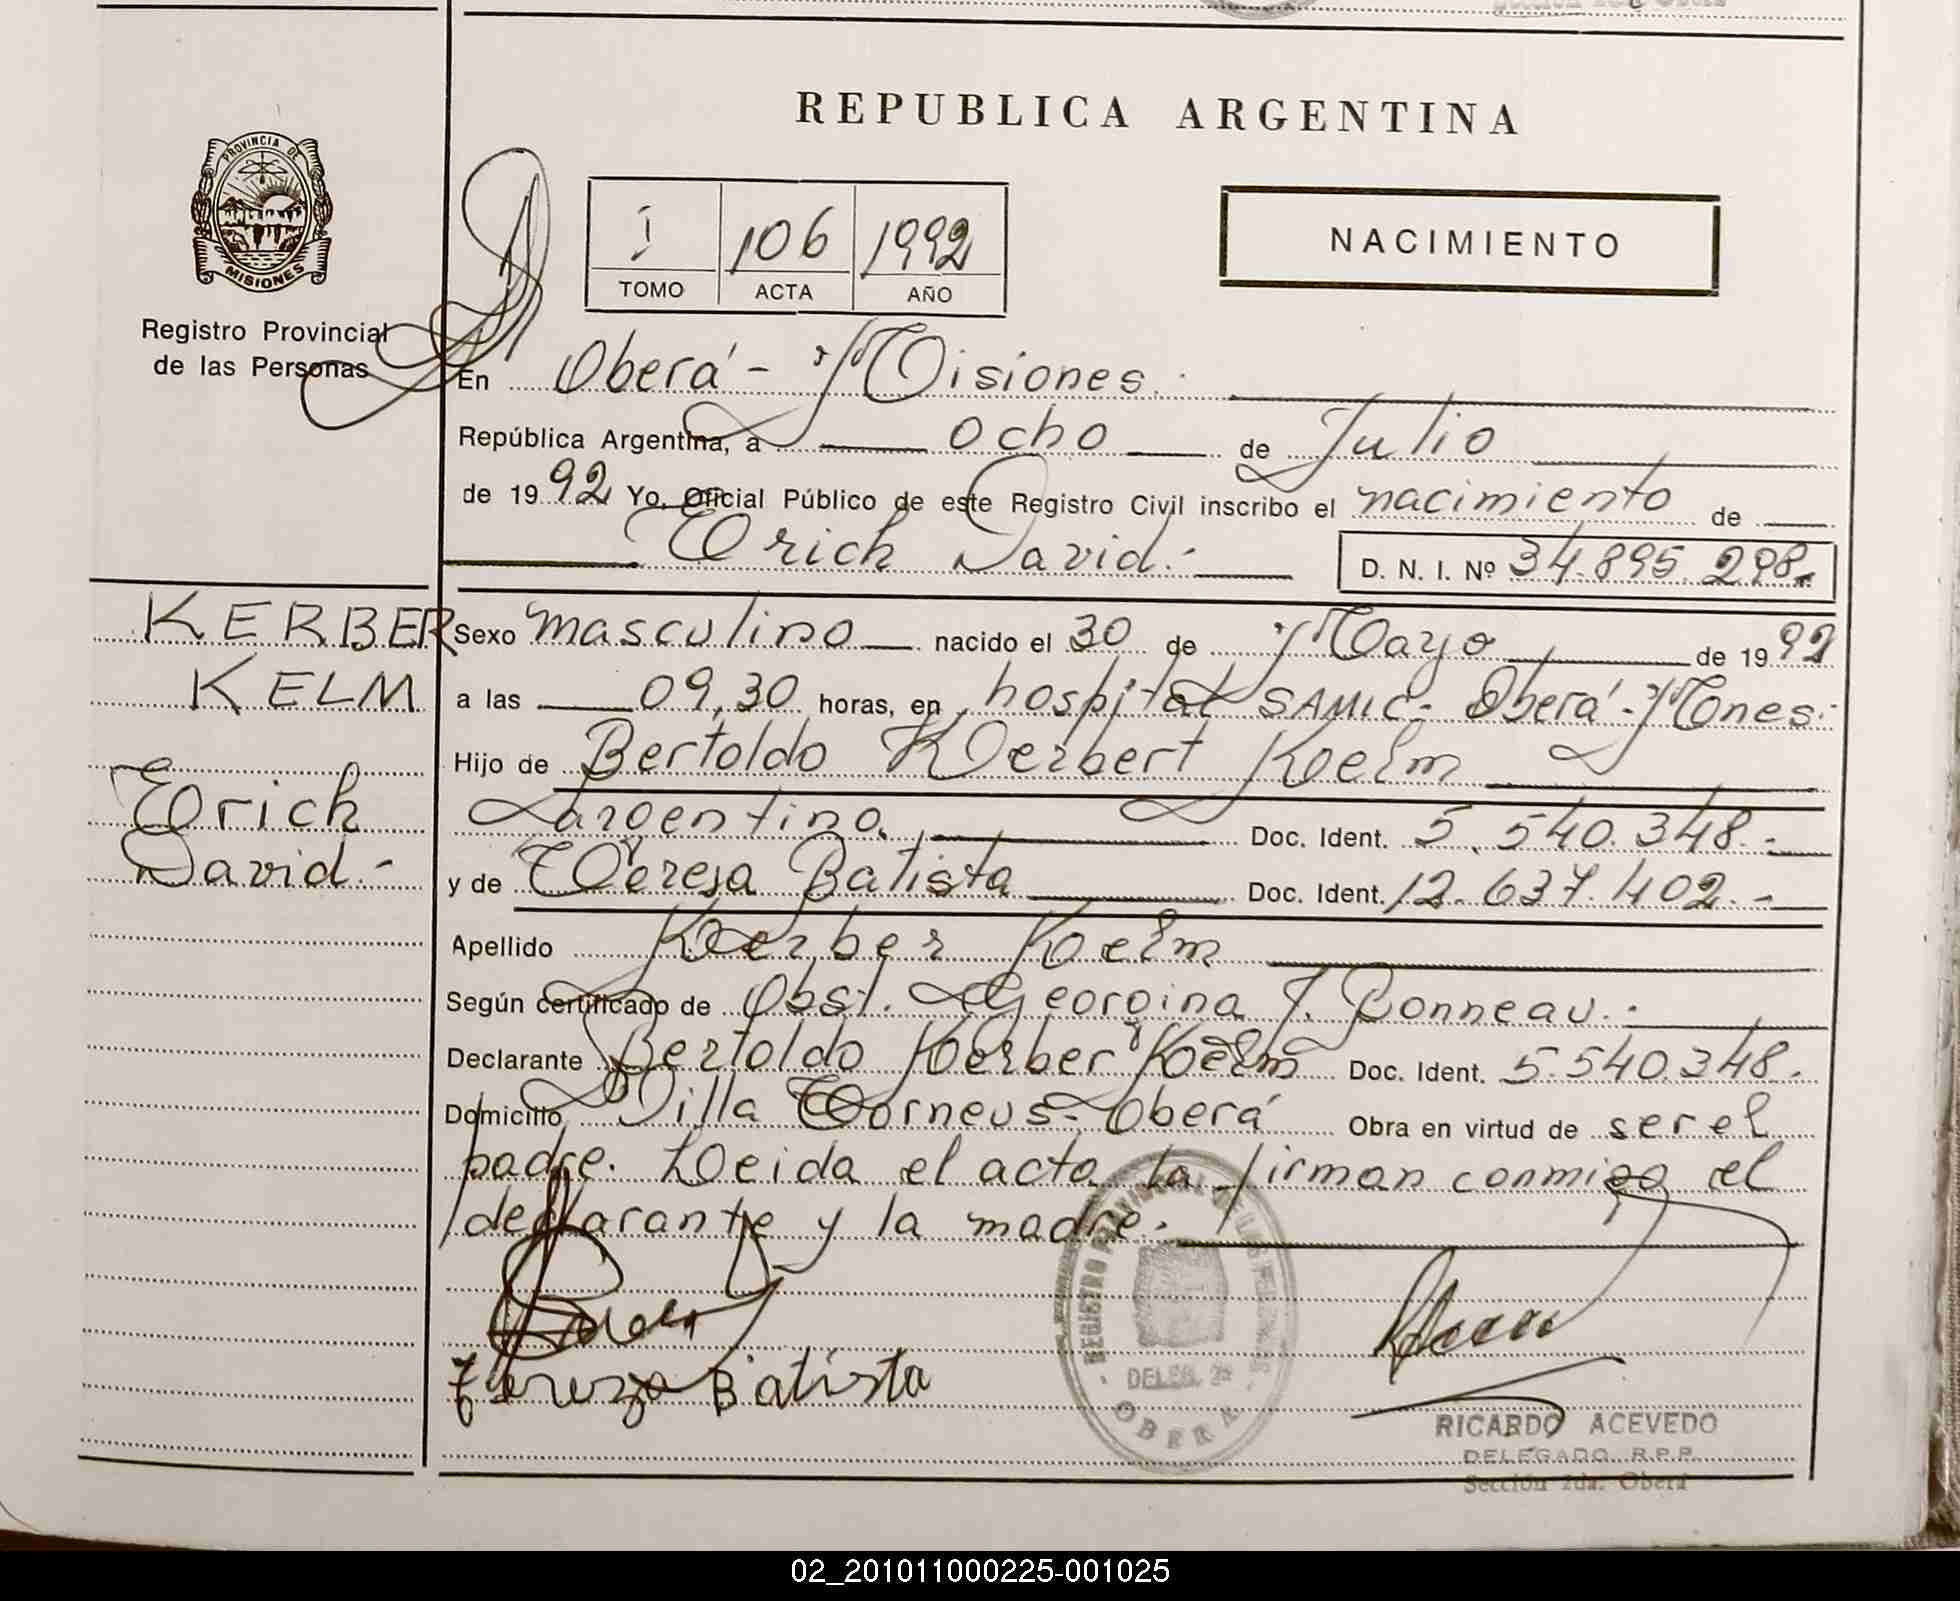 REPUBLICA ARGENTINA
PROVINCIA DE
MISIONES
Registro Provincial
de las Personas
I 106 1992
TOMO ACTA AÑO
NACIMIENTO
En Oberá - Misiones.
República Argentina, a ocho de Julio
de 1992 Yo, Oficial Público de este Registro Civil inscribo el nacimiento de
Erich David.- D. N. I. Nº 34.895.298.
KERBER
KELM
Erich
David.-
Sexo masculino nacido el 30 de Mayo de 1992
a las 09,30 horas, en hospital SAMIC - Oberá - Mones.
Hijo de Bertoldo Kerbert Kelm
argentina Doc. Ident. 5.540.348.-
y de Teresa Batista Doc. Ident. 12.637.402.-
Apellido Kerber Kelm
Según certificado de Obst. Georgina J. Bonneau.-
Declarante Bertoldo Kerber Kelm Doc. Ident. 5.540.348.
Domicilio Villa Torneus - Oberá Obra en virtud de ser el
padre. Leida el acta la firman conmigo el
declarante y la madre.-
Tereza Batista
REGISTRO PROVINCIAL DE LAS PERSONAS
DELEG. 2ª
OBERA
RICARDO ACEVEDO
DELEGADO R.P.P.
Sección 2da. Oberá
02_201011000225-001025